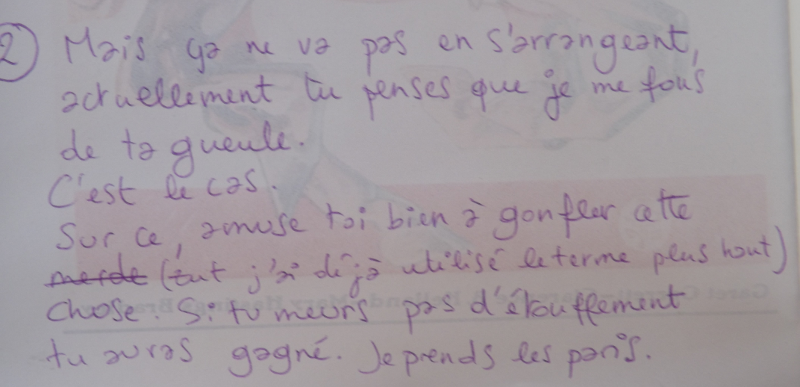 2 Mais ça ne va pas en s'arrangeant,
actuellement tu penses que je me fous
de ta gueule.
C'est le cas.
Sur ce, amuse toi bien à gonfler cette
merde (zut j'ai déjà utilisé le terme plus haut)
chose. Si tu meurs pas d'étouffement
tu auras gagné. Je prends les paris.